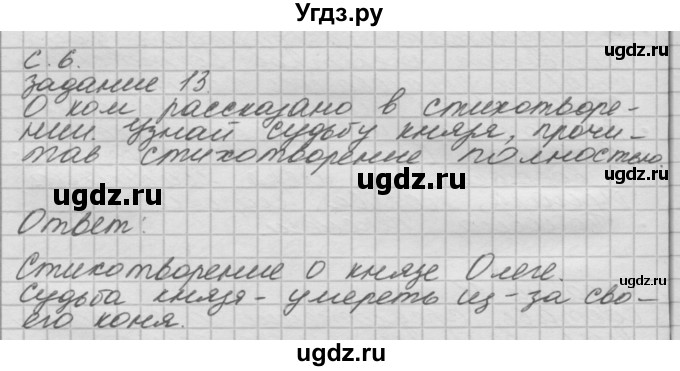 Угдз.ру
с. 6.
ugdz.ru
задание 13.
О ком рассказано в стихотворе-
нии. Узнай судьбу князя, прочи-
тав стихотворение полностью.
ugdz.ru
ugdz.ru
ugdz.ru
Ответ:
Стихотворение о князе Олеге.
ugdz.ru
Судьба князя - умереть из-за сво-
его коня.
ugdz.ru
ugdz.ru